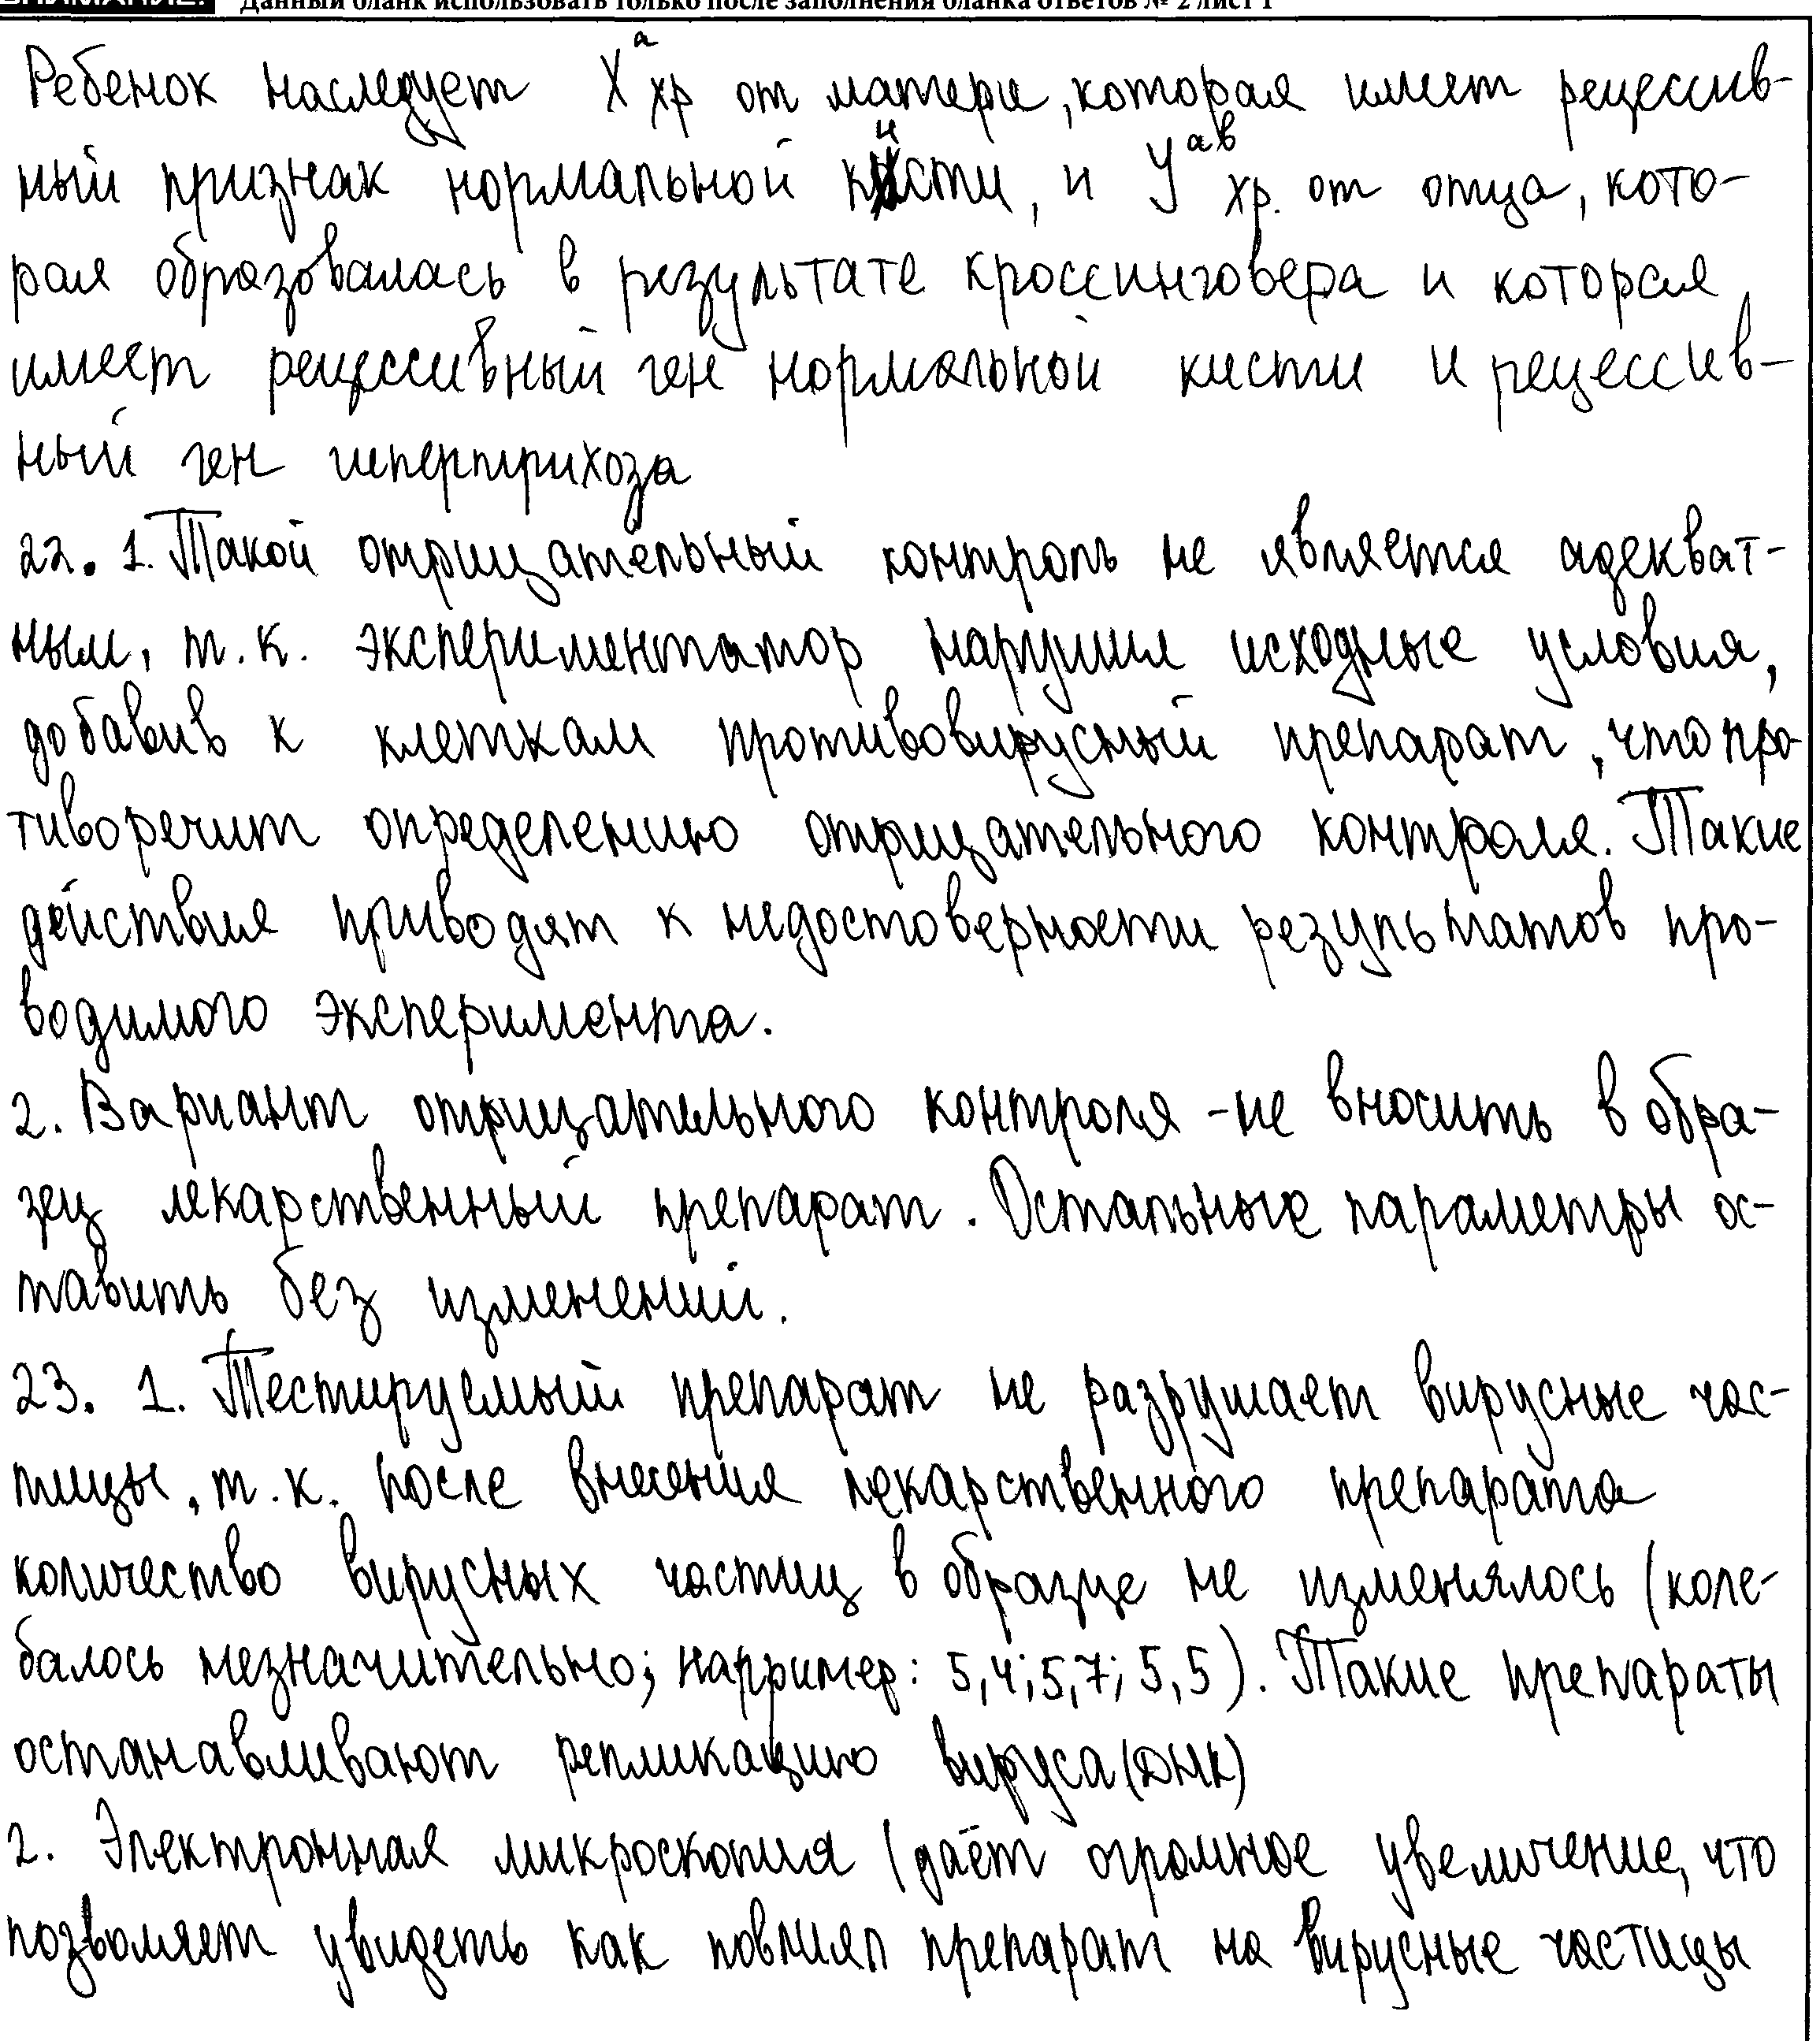 ВНИМАНИЕ! Данный бланк использовать только после заполнения бланка ответов № 2 лист 1
Ребенок наследует Xᵃ хр от матери, которая имеет рецессив-
ный признак нормальной кисти, и Yᵃᵇ хр. от отца, кото-
рая образовалась в результате кроссинговера и которая
имеет рецессивный ген нормальной кисти и рецессив-
ный ген гипертрихоза
22. 1. Такой отрицательный контроль не является адекват-
ным, т.к. экспериментатор нарушил исходные условия,
добавив к клеткам противовирусный препарат, что про
тиворечит определению отрицательного контроля. Такие
действия приводят к недостоверности результатов про-
водимого эксперимента.
2. Вариант отрицательного контроля - не вносить в обра-
зец лекарственный препарат. Остальные параметры ос-
тавить без изменений.
23. 1. Тестируемый препарат не разрушает вирусные час-
тицы, т.к. после внесения лекарственного препарата
количество вирусных частиц в образце не изменялось (коле-
балось незначительно; например: 5,4; 5,7; 5,5). Такие препараты
останавливают репликацию вируса (ДНК)
2. Электронная микроскопия (даёт огромное увеличение, что
позволяет увидеть как повлиял препарат на вирусные частицы